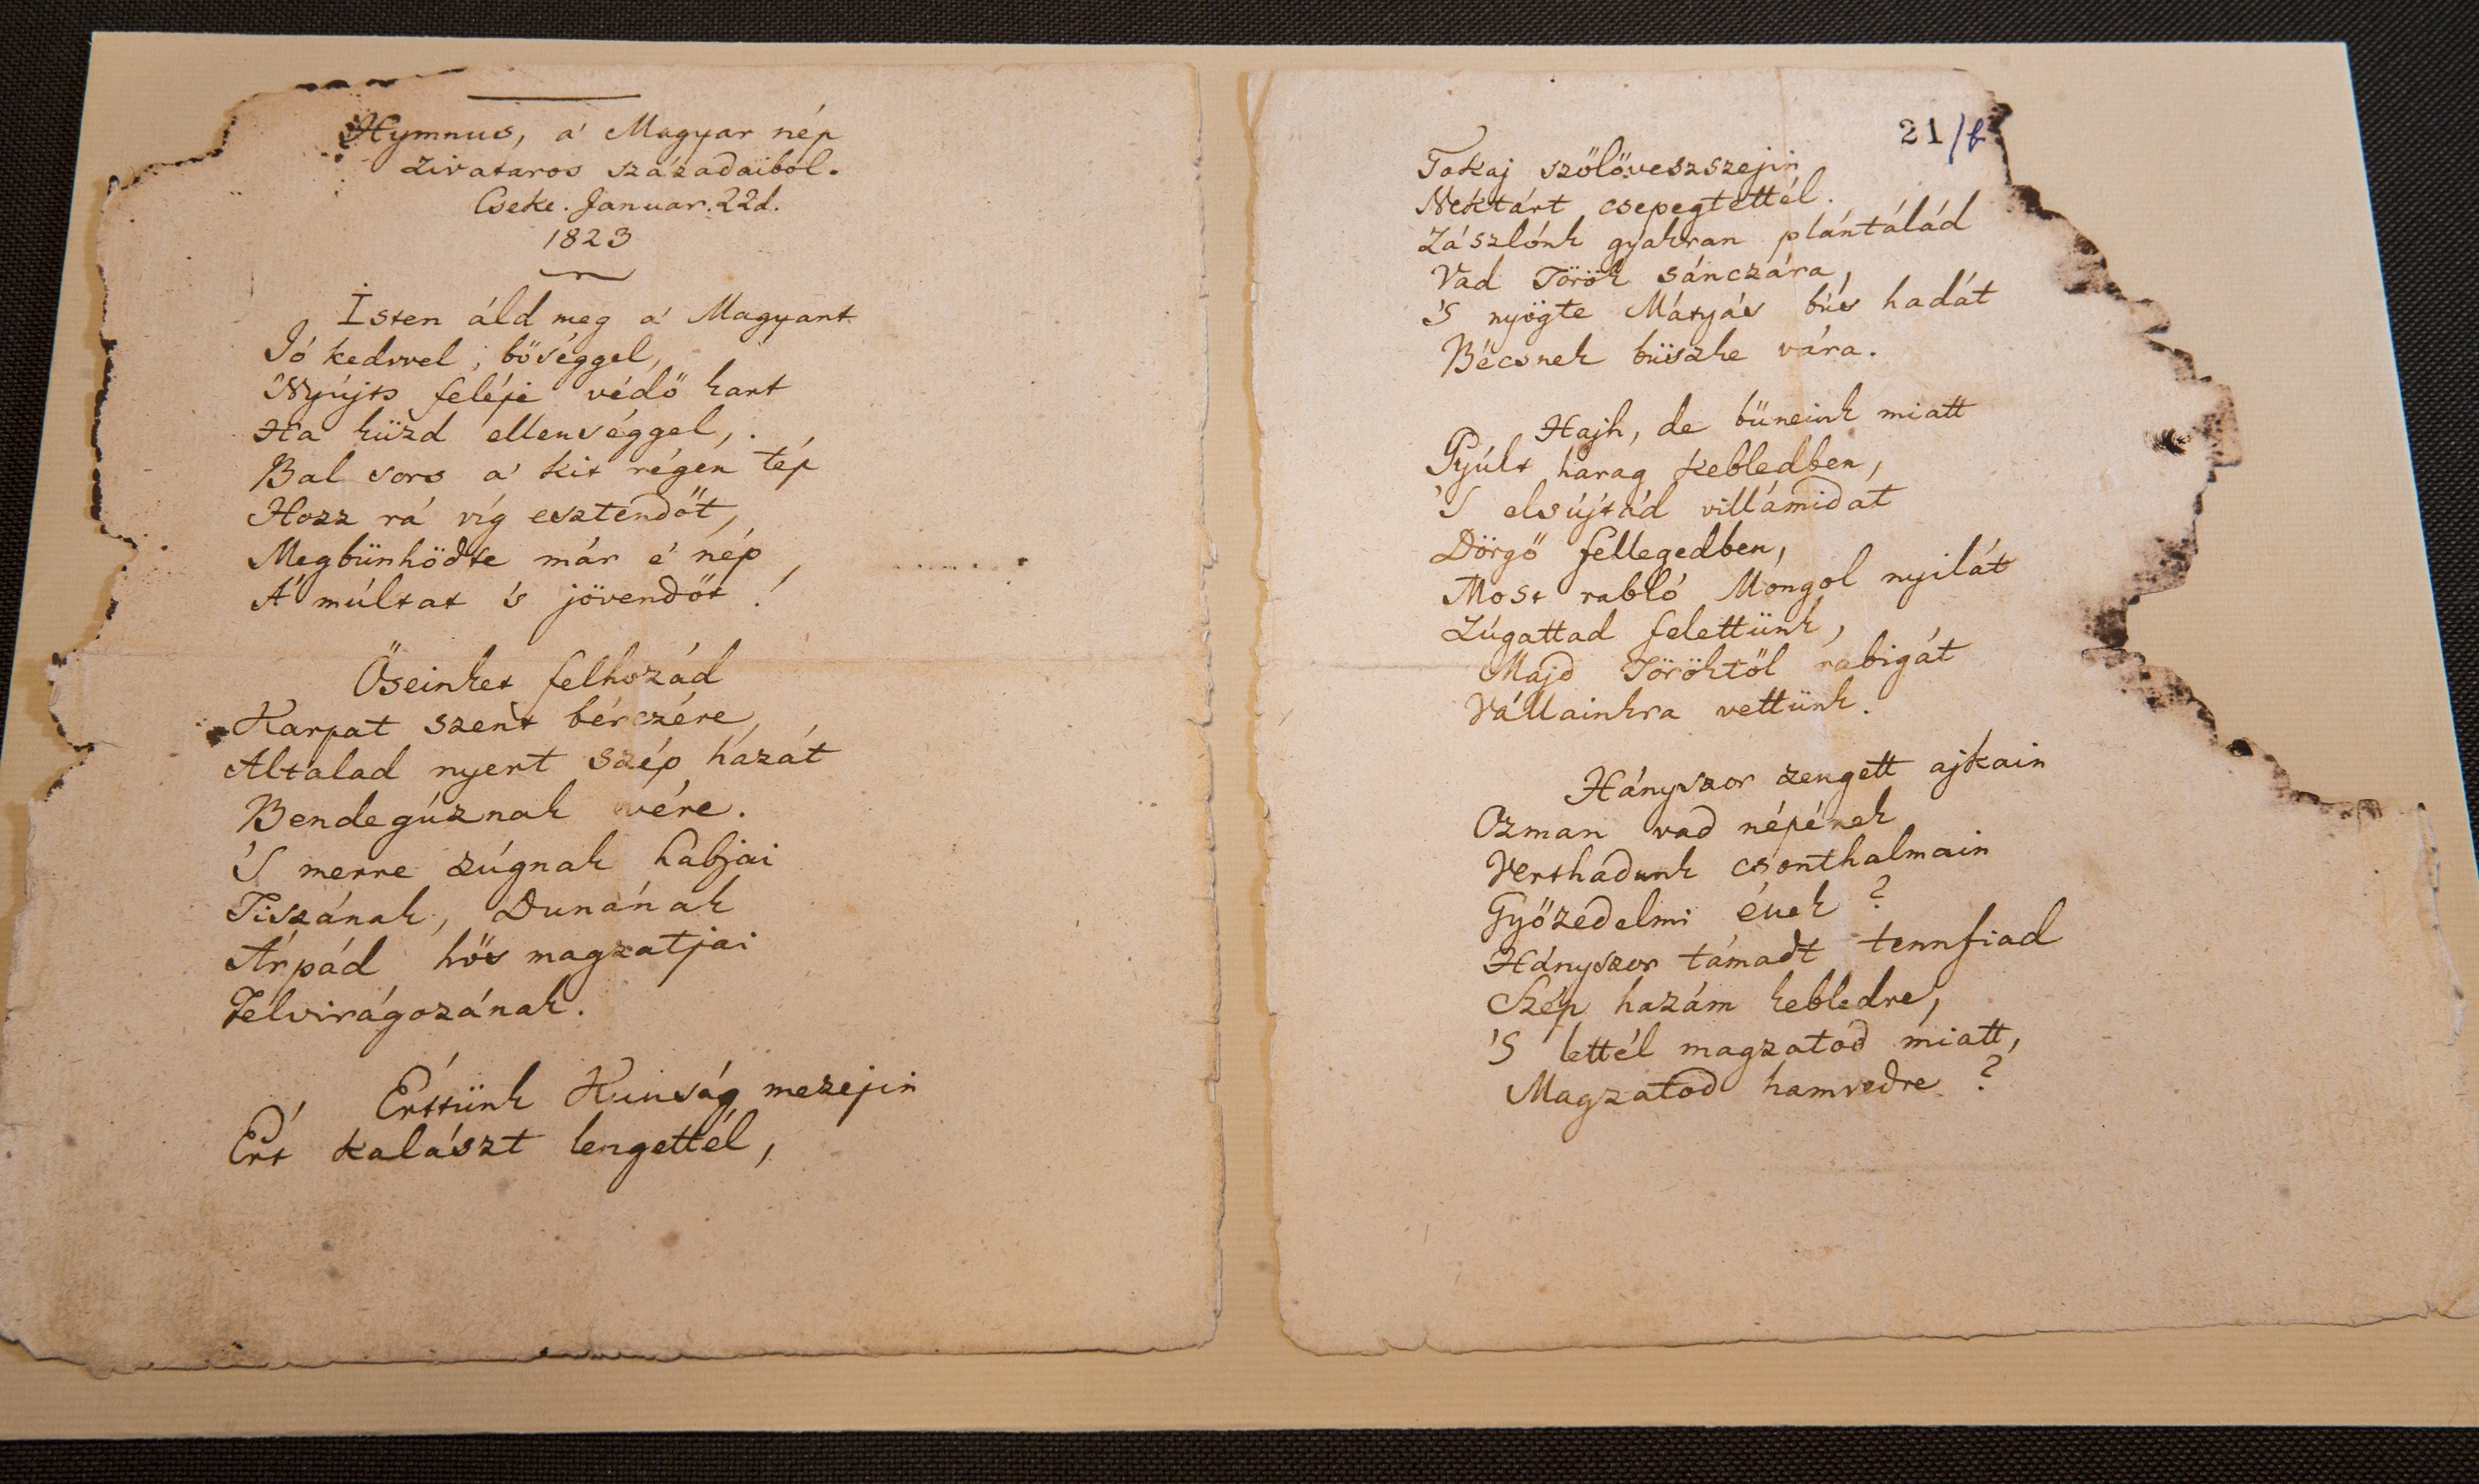 Hymnus, a' Magyar nép
zivataros századaiból.
Cseke. Januar. 22d.
1823
Isten áld meg a' Magyart
Jó kedvvel, bőséggel,
Nyújts feléje védő kart
Ha küzd ellenséggel,
Bal sors a' kit régen tép
Hozz rá víg esztendőt,
Megbünhödte már e' nép
A' múltat 's jövendőt!
Őseinket felhozád
Karpat szent bérczére,
Altalad nyert szép hazát
Bendegúznak vére.
'S merre zúgnak habjai
Tiszának, Dunának
Árpád hős magzatjai
Felvirágozának.
Értünk Kunság mezejin
Ért kalászt lengettél,
21/b
Tokaj szőlőveszszejin
Nektárt csepegtettél.
Zászlónk gyakran plántálád
Vad Török sánczára,
'S nyögte Mátyás bús hadát
Bécsnek büszke vára.
Hajh, de bűneink miatt
Gyúlt harag kebledben,
'S elsújtád villámidat
Dörgő fellegedben,
Most rabló Mongol nyilát
Zúgattad felettünk,
Majd Töröktől rabigát
Vállainkra vettünk.
Hányszor zengett ajkain
Ozman vad népének
Vert hadunk csonthalmain
Győzedelmi ének?
Hányszor támadt tennfiad
Szép hazám kebledre,
'S lettél magzatod miatt,
Magzatod hamvedre?